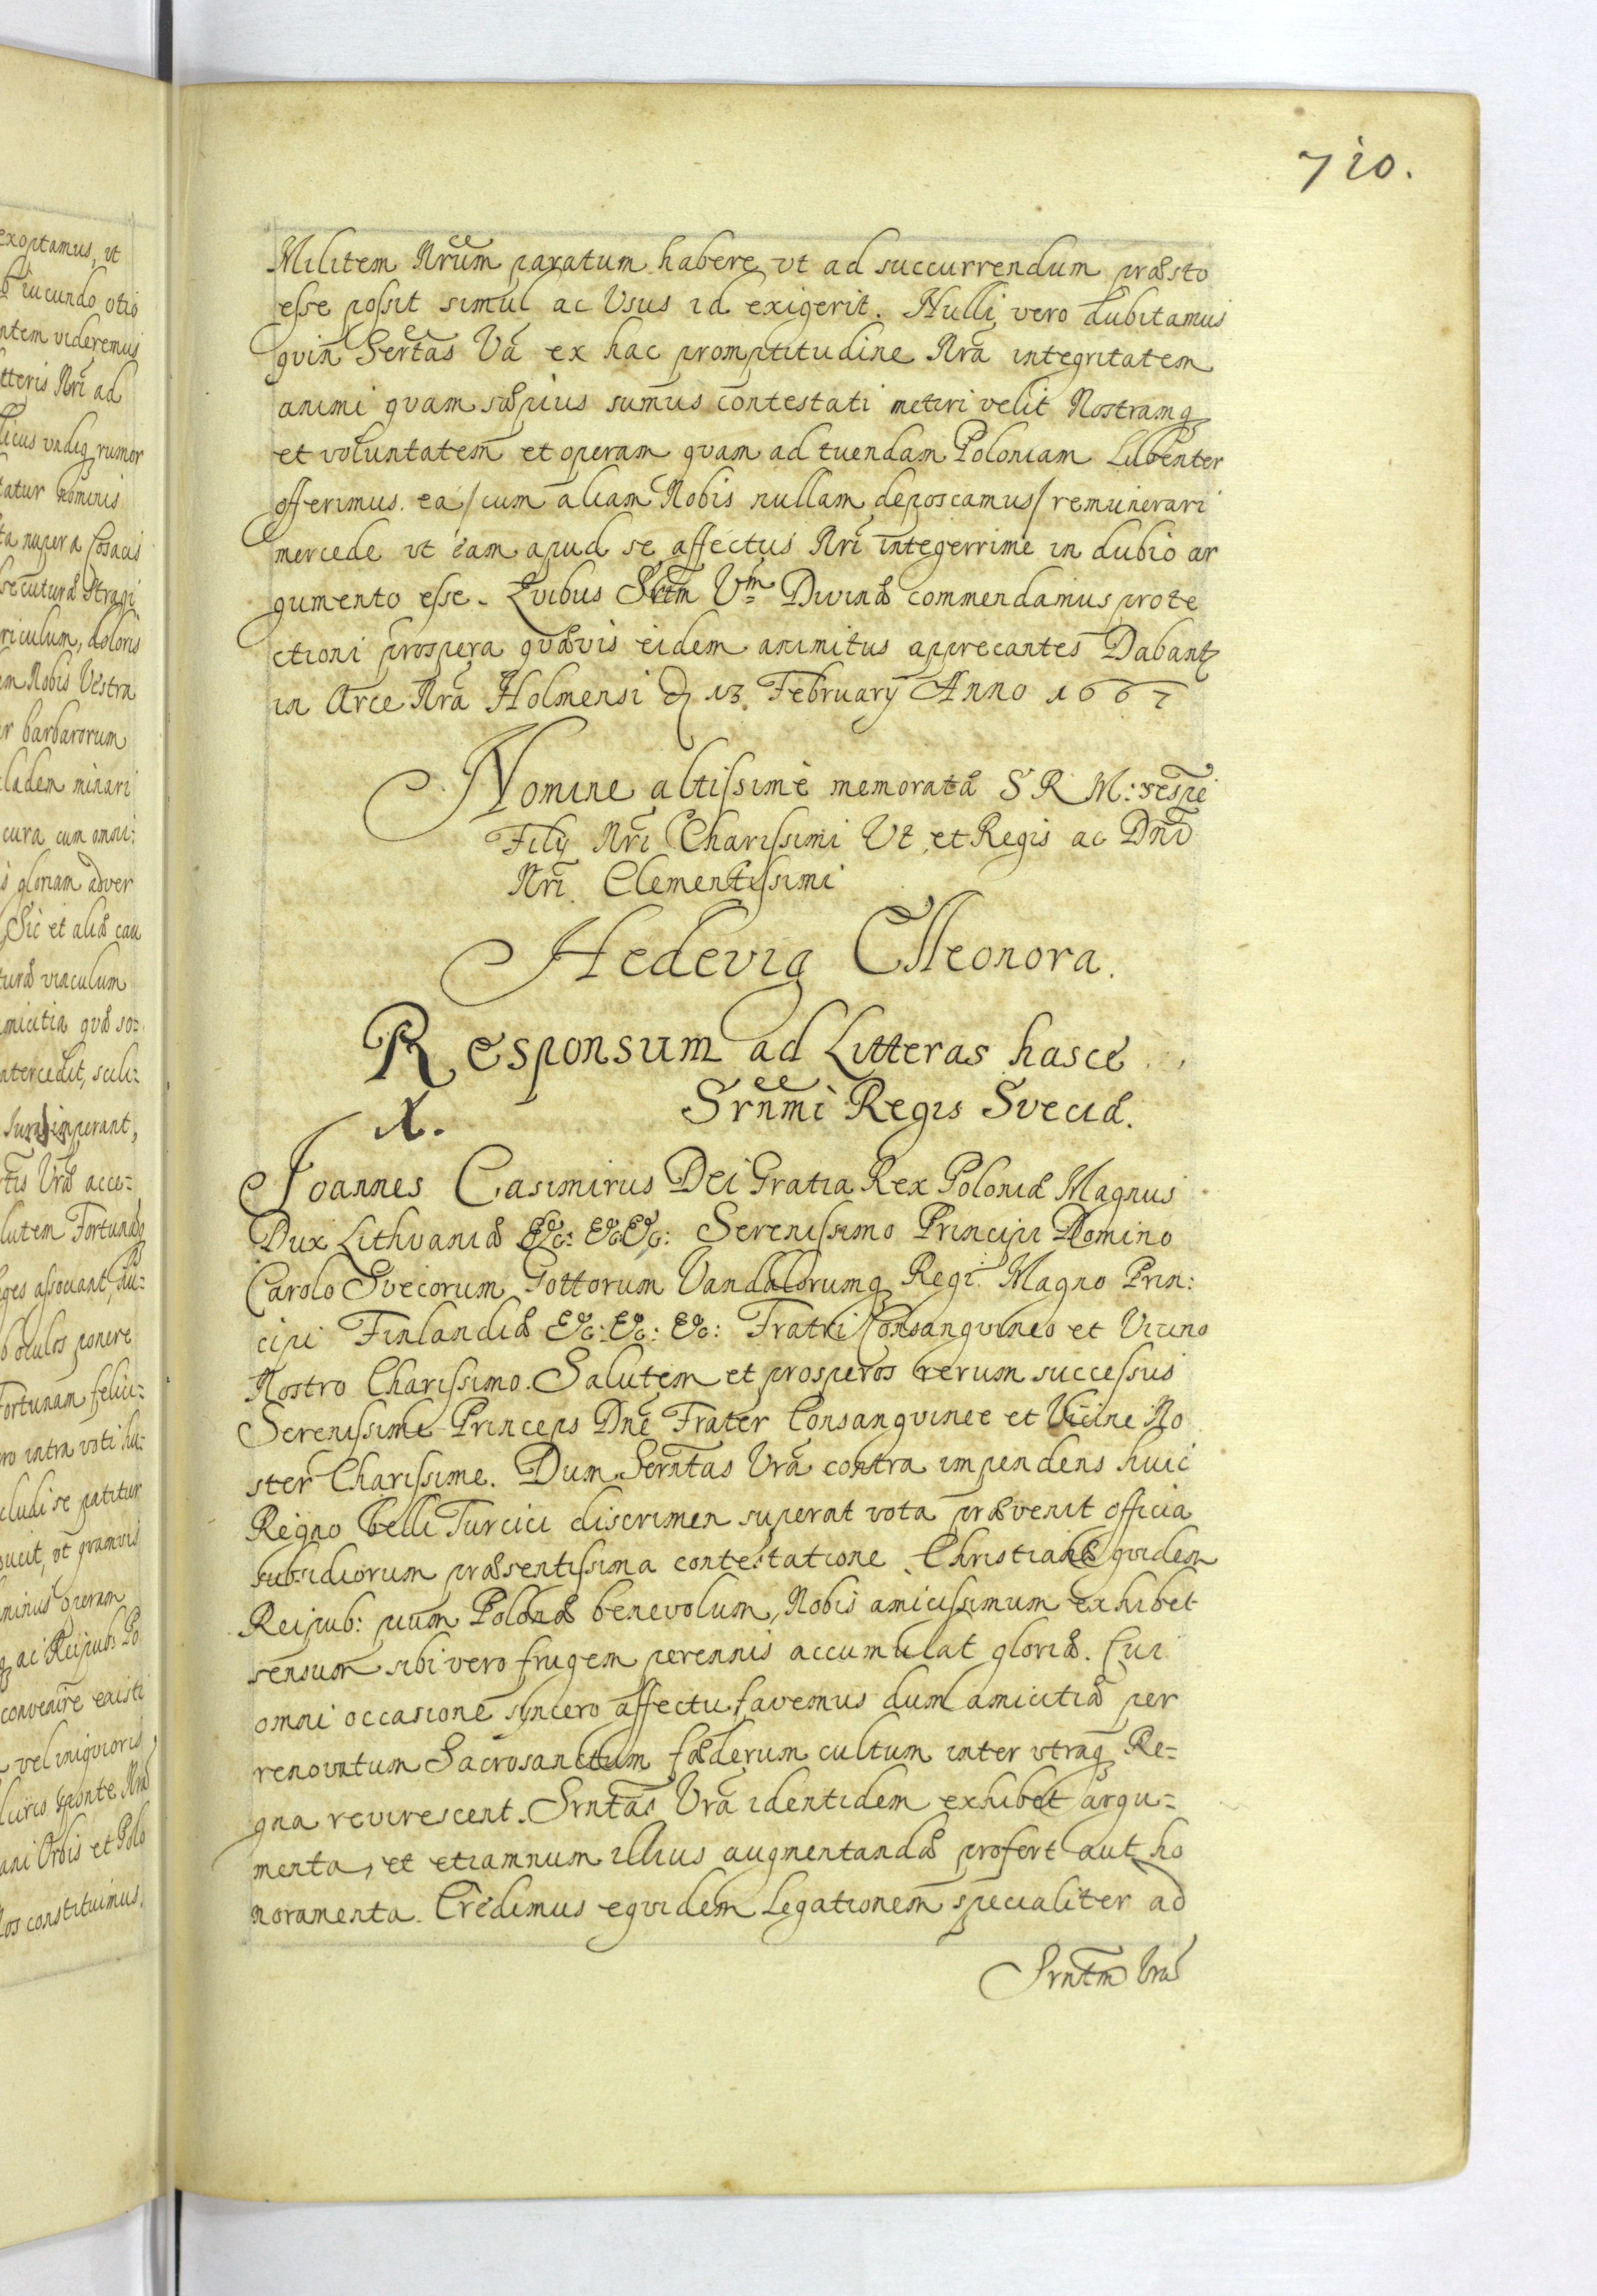 exoptamus, ut
iucundo otio
ntem videremus
tteris Nri ad
licus undiq rumor
tatur hominis
ta nupera Cosacis
secuturæ stragi
riculum, doloris
em Nobis Vestra
er barbarorum
cladem minari
cura cum omni:
s gloriam adver
Sic et aliæ cau
turæ vinculum
micitia quæ so:
ntercedit, scili:
Jura imperant,
tis Vræ acce=
lutem Fortunæq
ges assouant, au=
b oculos ponere
Fortunam felici=
ro intra voti ha:
cludi se patitur
ucit, ut quamvis
minus operam
q ac Reipub: Po
convenire existi
vel iniquioris,
luris sponte Nræ
ani Orbis et Polo
Nos constituimus.
710.
Militem Nrum paratum habere vt ad succurrendum præsto
esse possit simul ac Usus id exigerit. Nulli vero dubitamus
qvin Sertas Va ex hac promptitudine Nra integritatem
animi qvam sæpius sumus contestati metiri velit Nostramq
et voluntatem et operam qvam ad tuendam Poloniam Lubenter
offerimus. ea / cum aliam Nobis nullam deposcamus / remunerari
mercede vt eam apud se affectus Nri integerrime in dubio ar
gumento esse. Qvibus Srtm Vm Divinæ commendamus prote
ctioni prospera qvævis eidem animitus apprecantes Dabant
in Arce Nra Holmensi d 13. February Anno 1667
Nomine altissime memoratæ S R M: respe
Filij Nri Charissimi Ut et Regis ac Dni
Nri Clementissimi
Hedevig Elleonora.
Responsum ad Litteras hasce
X. Srnmi Regis Sveciæ.
Joannes Casimirus Dei Gratia Rex Poloniæ Magnus
Dux Lithvaniæ &c: &c &c: Serenissimo Principi Domino
Carolo Svecorum Gottorum Vandalorumq Regi Magno Prin:
cipi Finlandiæ &c: &c: &c: Fratri Consangvineo et Vicino
Nostro Charissimo. Salutem et prosperos rerum successus
Serenissime Princeps Dne Frater Consangvinee et Vicine No
ster Charissime. Dum Serntas Vra contra impendens huic
Regno belli Turcici discrimen superat vota prævenit officia
subsidiorum præsentissima contestatione Christianæ qvidem
Reipub: pium Polonæ benevolum, Nobis amicissimum exhibet
sensum sibi vero frugem perennis accumulat gloriæ. Cui
omni occasione syncero affectu favemus dum amicitiæ per
renovatum Sacrosanctum fæderum cultum inter vtraq Re=
gna revirescent. Srntas Vra identidem exhibet argu=
menta, et etiamnum illius augmentandæ profert aut ho
noramenta. Credimus eqvidem Legationem specialiter ad
Srntm Vra